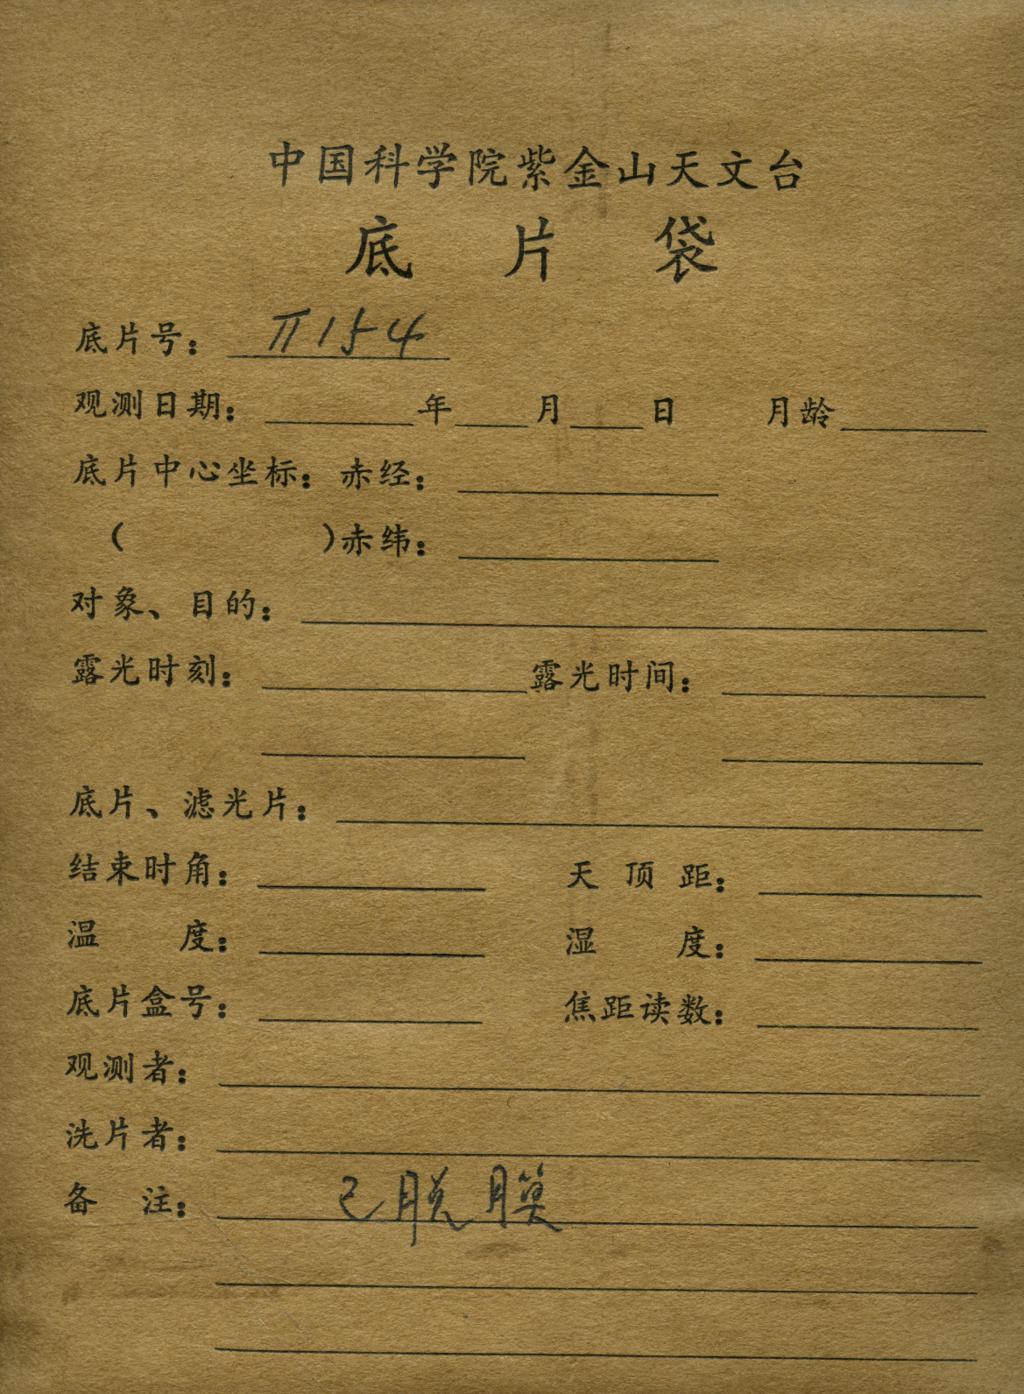 中国科学院紫金山天文台
底片袋
底片号： π154
观测日期： 年 月 日 月龄
底片中心坐标：赤经：
（ ）赤纬：
对象、目的：
露光时刻： 露光时间：
底片、滤光片：
结束时角： 天顶距：
温度： 湿度：
底片盒号： 焦距读数：
观测者：
洗片者：
备注： 已脱膜